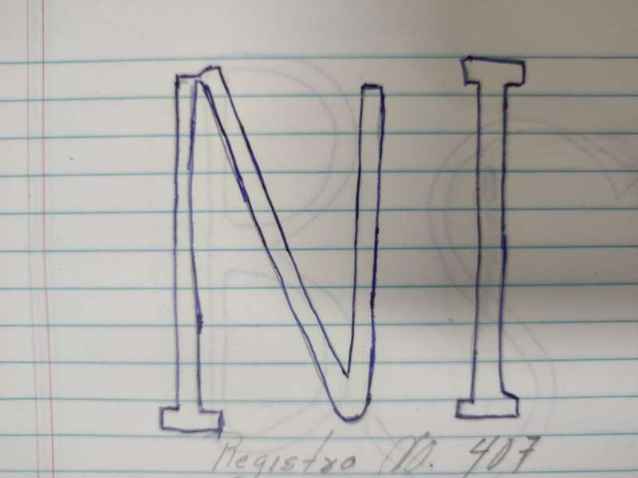 NI
Registro No. 407